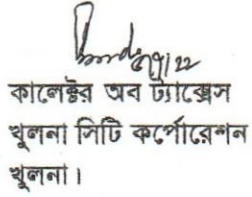 কালেক্টর অব ট্যাক্সেস
খুলনা সিটি কর্পোরেশন
খুলনা।